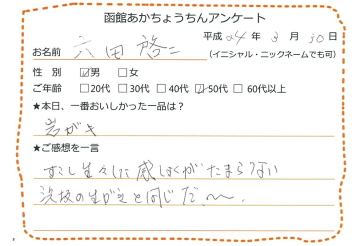 函館あかちょうちんアンケート
平成24年3月30日
お名前 六田啓二
(イニシャル・ニックネームでも可)
性 別 ☑男 □女
ご年齢 □20代 □30代 □40代 ☑50代 □60代以上
★本日、一番おいしかった一品は?
岩ガキ
★ご感想を一言
すこし生々した感しょくがたまらない
の生がきと同じだ〜